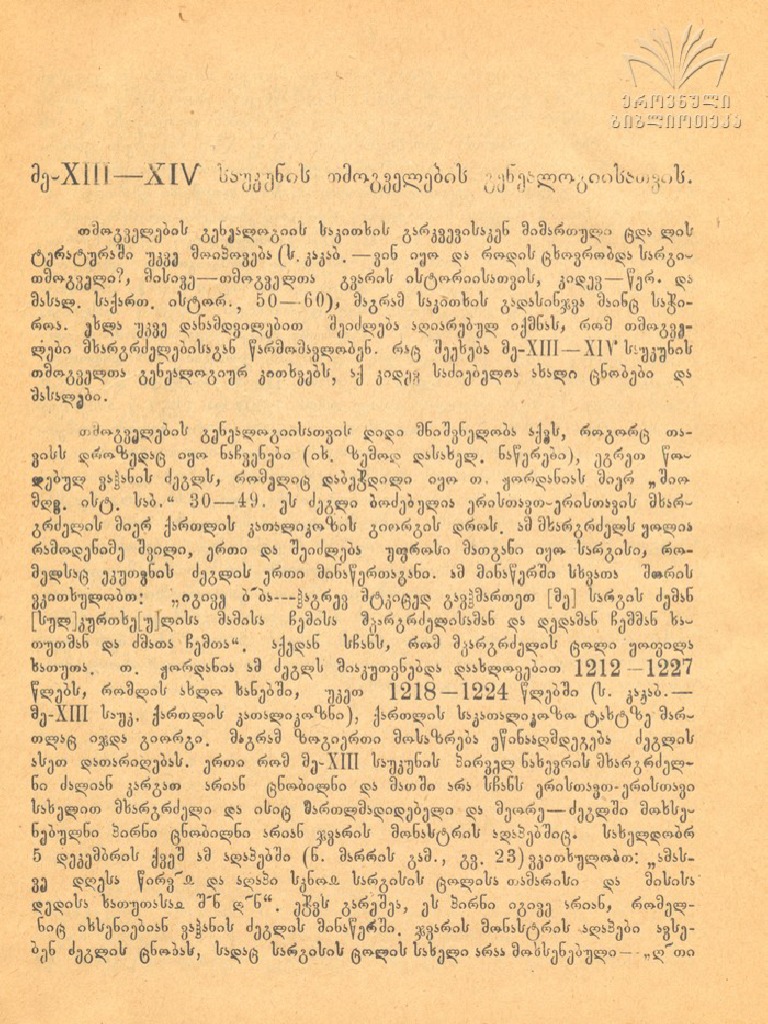 ეროვნული
ბიბლიოთეკა
მე-XIII—XIV საუკუნის თმოგველების გენეალოგიისათვის.
თმოგველების გენეალოგიის საკითხის გარკვევისაკენ მიმართული ცდა ლის
ტერატურაში უკვე მოიპოვება (ს. კაკაბ. — ვინ იყო და როდის ცხოვრობდა სარგი-
თმოგველი?, მისივე—თმოგველთა გვარის ისტორიისათვის, კიდევ—წერ. და
მასალ. საქართ. ისტორ., 50—60), მაგრამ საკითხის გადასინჯვა მაინც საჭი-
როა. ეხლა უკვე დანამდვილებით შეიძლება აღიარებულ იქმნას, რომ თმოგვე-
ლები მხარგრძელებისაგან წარმომავლობენ. რაც შეეხება მე-XIII—XIV საუკუნის
თმოგველთა გენეალოგიურ კითხვებს, აქ კიდევ საძიებელია ახალი ცნობები და
მასალები.
თმოგველების გენეალოგიისათვის დიდი მნიშვნელობა აქვს, როგორც თა-
ვისს დროზედაც იყო ნაჩვენები (იხ. ზემოდ დასახელ. ნაწერები), ეგრეთ წო-
დებულ ვაჰანის ძეგლს, რომელიც დაბეჭდილი იყო თ. ჟორდანიას მიერ „შიო
მღვ. ისტ. საბ.“ 30—49. ეს ძეგლი ბოძებულია ერისთავთ-ერისთავის მხარ-
გრძელის მიერ ქართლის კათალიკოზის გიორგის დროს. ამ მხარგრძელს ყოლია
რამოდენიმე შვილი, ერთი და შეიძლება უფროსი მათგანი იყო სარგისი, რო-
მელსაც ეკუთვნის ძეგლის ერთი მინაწერთაგანი. ამ მინაწერში სხვათა შორის
ვკითხულობთ: „იგივე ბ~ბა---ჰაგრევ მტკიცედ გავჰმართეთ [მე] სარგის ძემან
[სულ]კურთხე[უ]ლისა მამისა ჩემისა მჴარგრძელისამან და დედამან ჩემმან ხა-
თუთმან და ძმათა ჩემთა“. აქედან სჩანს, რომ მჴარგრძელის ცოლი ყოფილა
ხათუთა. თ. ჟორდანია ამ ძეგლს მიაკუთვნებდა დაახლოვებით 1212—1227
წლებს, რომლის ახლო ხანებში, უკეთ 1218—1224 წლებში (ს. კაკაბ.—
მე-XIII საუკ. ქართლის კათალიკოზნი), ქართლის საკათალიკოზო ტახტზე მარ-
თლაც იჯდა გიორგი. მაგრამ ზოგიერთი მოსაზრება ეწინააღმდეგება ძეგლის
ასეთ დათარიღებას. ერთი რომ მე-XIII საუკუნის პირველ ნახევრის მხარგრძელ-
ნი ძალიან კარგათ არიან ცნობილნი და მათში არა სჩანს ერისთავთ-ერისთავი
სახელით მხარგრძელი და ისიც მართლმადიდებელი და მეორე—ძეგლში მოხსე-
ნებულნი პირნი ცნობილნი არიან ჯვარის მონასტრის აღაპებშიც. სახელდობრ
5 დეკემბრის ქვეშ ამ აღაპებში (ნ. მარრის გამ., გვ. 23) ვკითხულობთ: „ამას-
ვე დღესა წირვ~ჲ და აღაპი სჯნოჲ სარგისის ცოლისა თამარისი და მისისა
დედისა ხათუთასაჲ შ~ნ ღ~ნ“. ეჭვს გარეშეა, ეს პირნი იგივე არიან, რომელ-
ნიც იხსენიებიან ვაჰანის ძეგლის მინაწერში. ჯვარის მონასტრის აღაპები ავსე-
ბენ ძეგლის ცნობას, სადაც სარგისის ცოლის სახელი არაა მოხსენებული—„ღ~თი